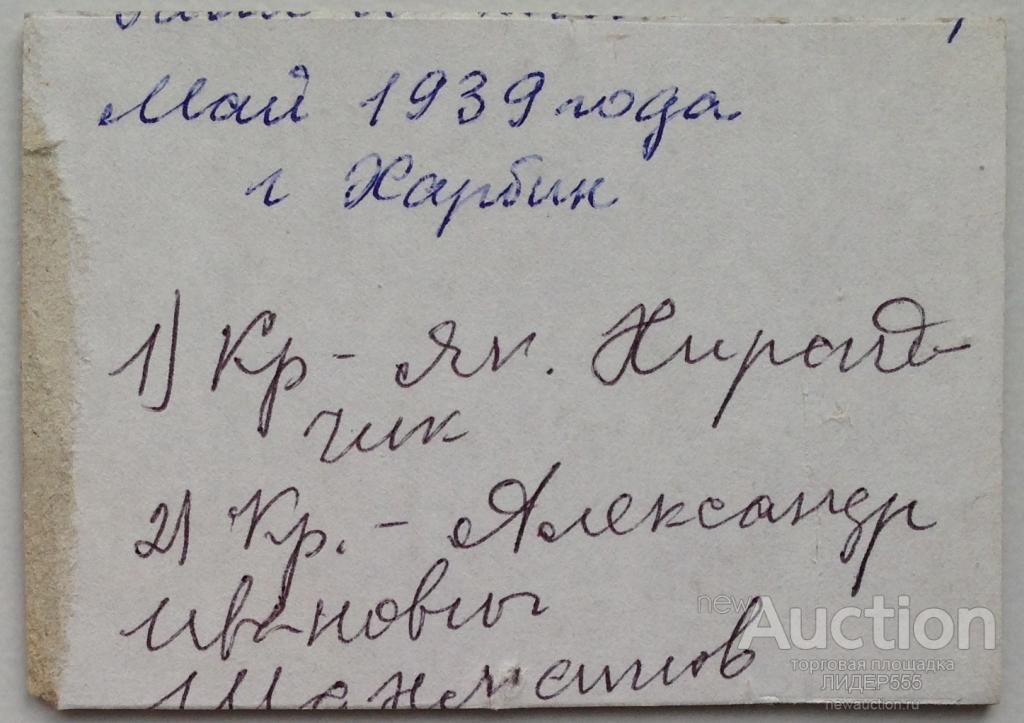 Май 1939 года
г Харбин
1) Кр - яп.
чик
2) Кр. - Александр
Иванович
newAuction
торговая площадка
ЛИДЕР555
newauction.ru